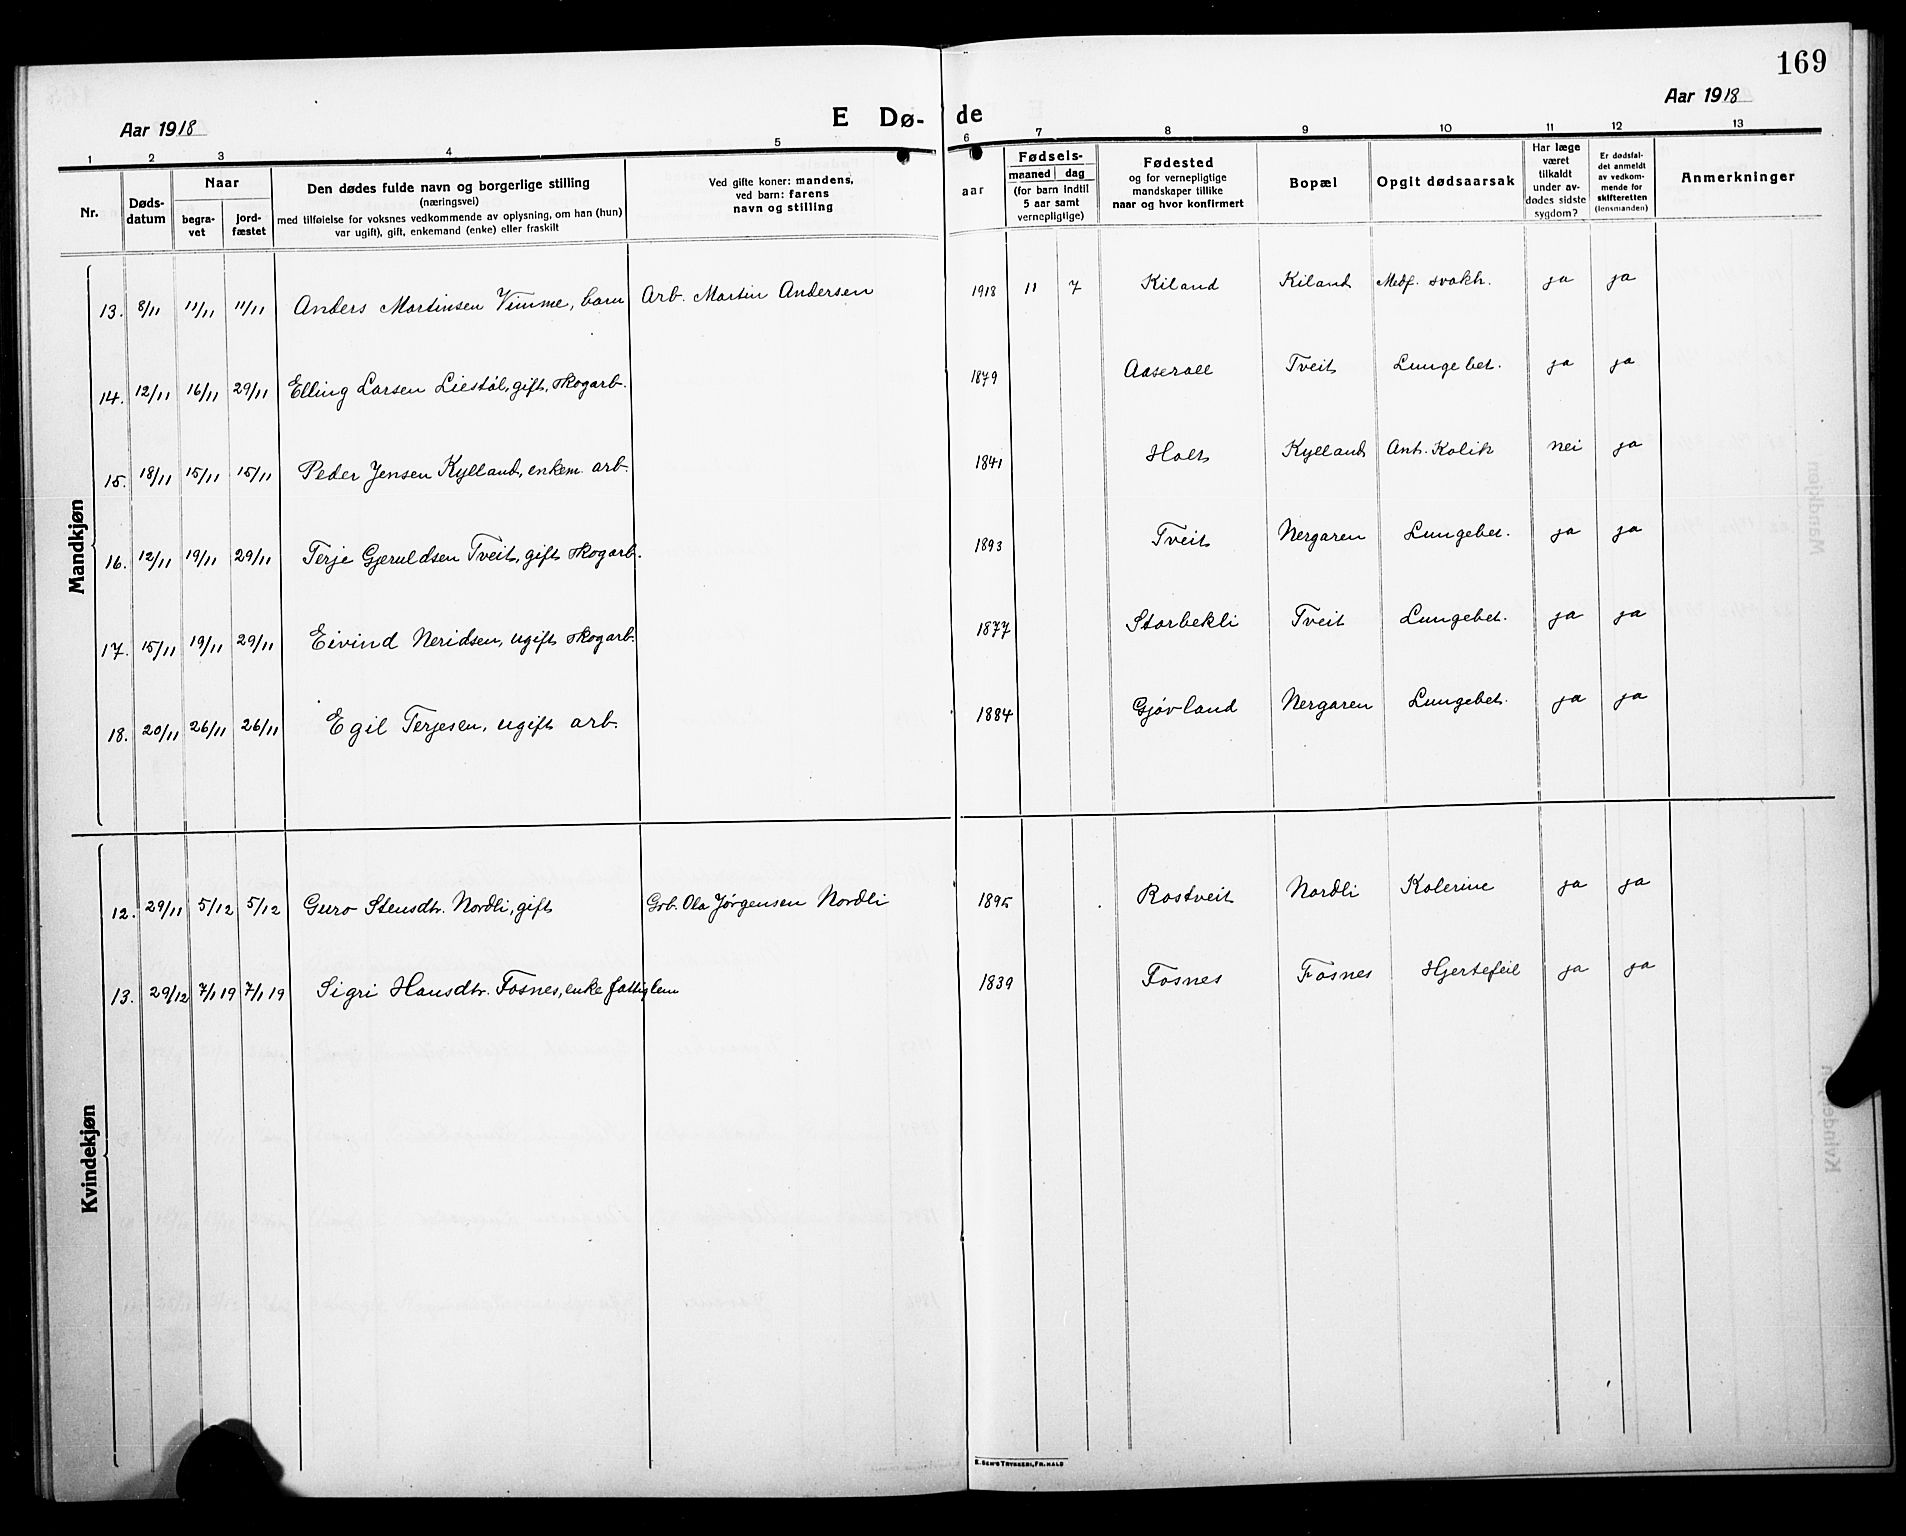 169
Aar 1918 E Dø- de Aar 1918
1 2 3 4 5 6 7 8 9 10 11 12 13
Nr.
Døds-
datum
Naar
begra-
vet
jord-
fæstet
Den dødes fulde navn og borgerlige stilling
(næringsvei)
med tilføielse for voksnes vedkommende av oplysning, om han (hun)
var ugift), gift, enkemand (enke) eller fraskilt
Ved gifte koner: mandens,
ved barn: farens
navn og stilling
aar
Fødsels-
maaned dag
(for barn indtil
5 aar samt
vernepligtige)
Fødested
og for vernepligtige
mandskaper tillike
naar og hvor konfirmert
Bopæl
Opgit dødsaarsak
Har læge
været
tilkaldt
under av-
dødes sidste
sygdom?
Er dødsfal-
det anmeldt
av vedkom-
mende for
skifteretten
(lensmanden)
Anmerkninger
Mandkjøn
13. 8/11 11/11 11/11 Anders Martinsen Vimme, barn Arb. Martin Andersen 1918 11 7 Kiland Kiland Medf. svakh. ja ja
14. 12/11 16/11 29/11 Elling Larsen Liestøl, gift, skogarb. 1879 Aaserall Tveit Lungebet. ja ja
15. 18/11 15/11 15/11 Peder Jensen Kylland, enkem. arb. 1841 Holt Kylland Ant. Kolik nei ja
16. 12/11 19/11 29/11 Terje Gjeruldsen Tveit, gift skogarb. 1893 Tveit Nergaren Lungebet. ja ja
17. 15/11 19/11 29/11 Eivind Neridsen, ugift skogarb. 1877 Storbekli Tveit Lungebet. ja ja
18. 20/11 26/11 26/11 Egil Terjesen, ugift arb. 1884 Gjøvland Nergaren Lungebet. ja ja
Kvindekjøn
12. 29/11 5/12 5/12 Guro Stensdtr. Nordli, gift Grb. Ola Jørgensen Nordli 1895 Rostveit Nordli Kolerine ja ja
13. 29/12 7/1 19 7/1 19 Sigri Hansdtr. Fosnes, enke fattiglem 1839 Fosnes Fosnes Hjertefeil ja ja
E. Sem's Trykkeri, Fr.hald